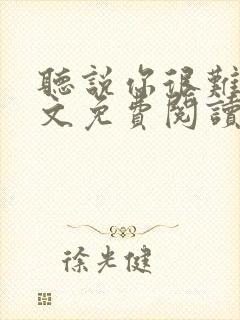 聽說你很難
文免費閱讀
徐光健